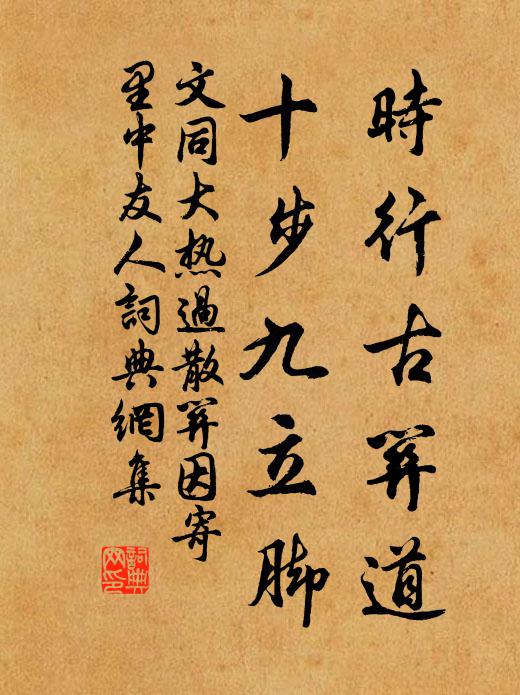 時行古關道
十步九立脚
文同大热過散關因寄
里中友人詞典網集
詞典网印